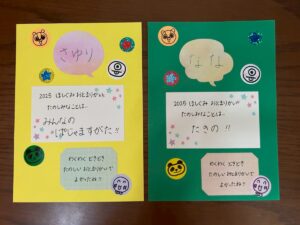 さゆり
2025 ほしぐみ おとまりかいの
たのしみなことは…
みんなの
ぱじゃますがた!!
わくわく どきどき
たのしい おとまりかいで
よかったね!!
なな
2025 ほしぐみ おとまりかいの
たのしみなことは…
たきの !!
わくわく どきどき
たのしい おとまりかいで
よかったね!!